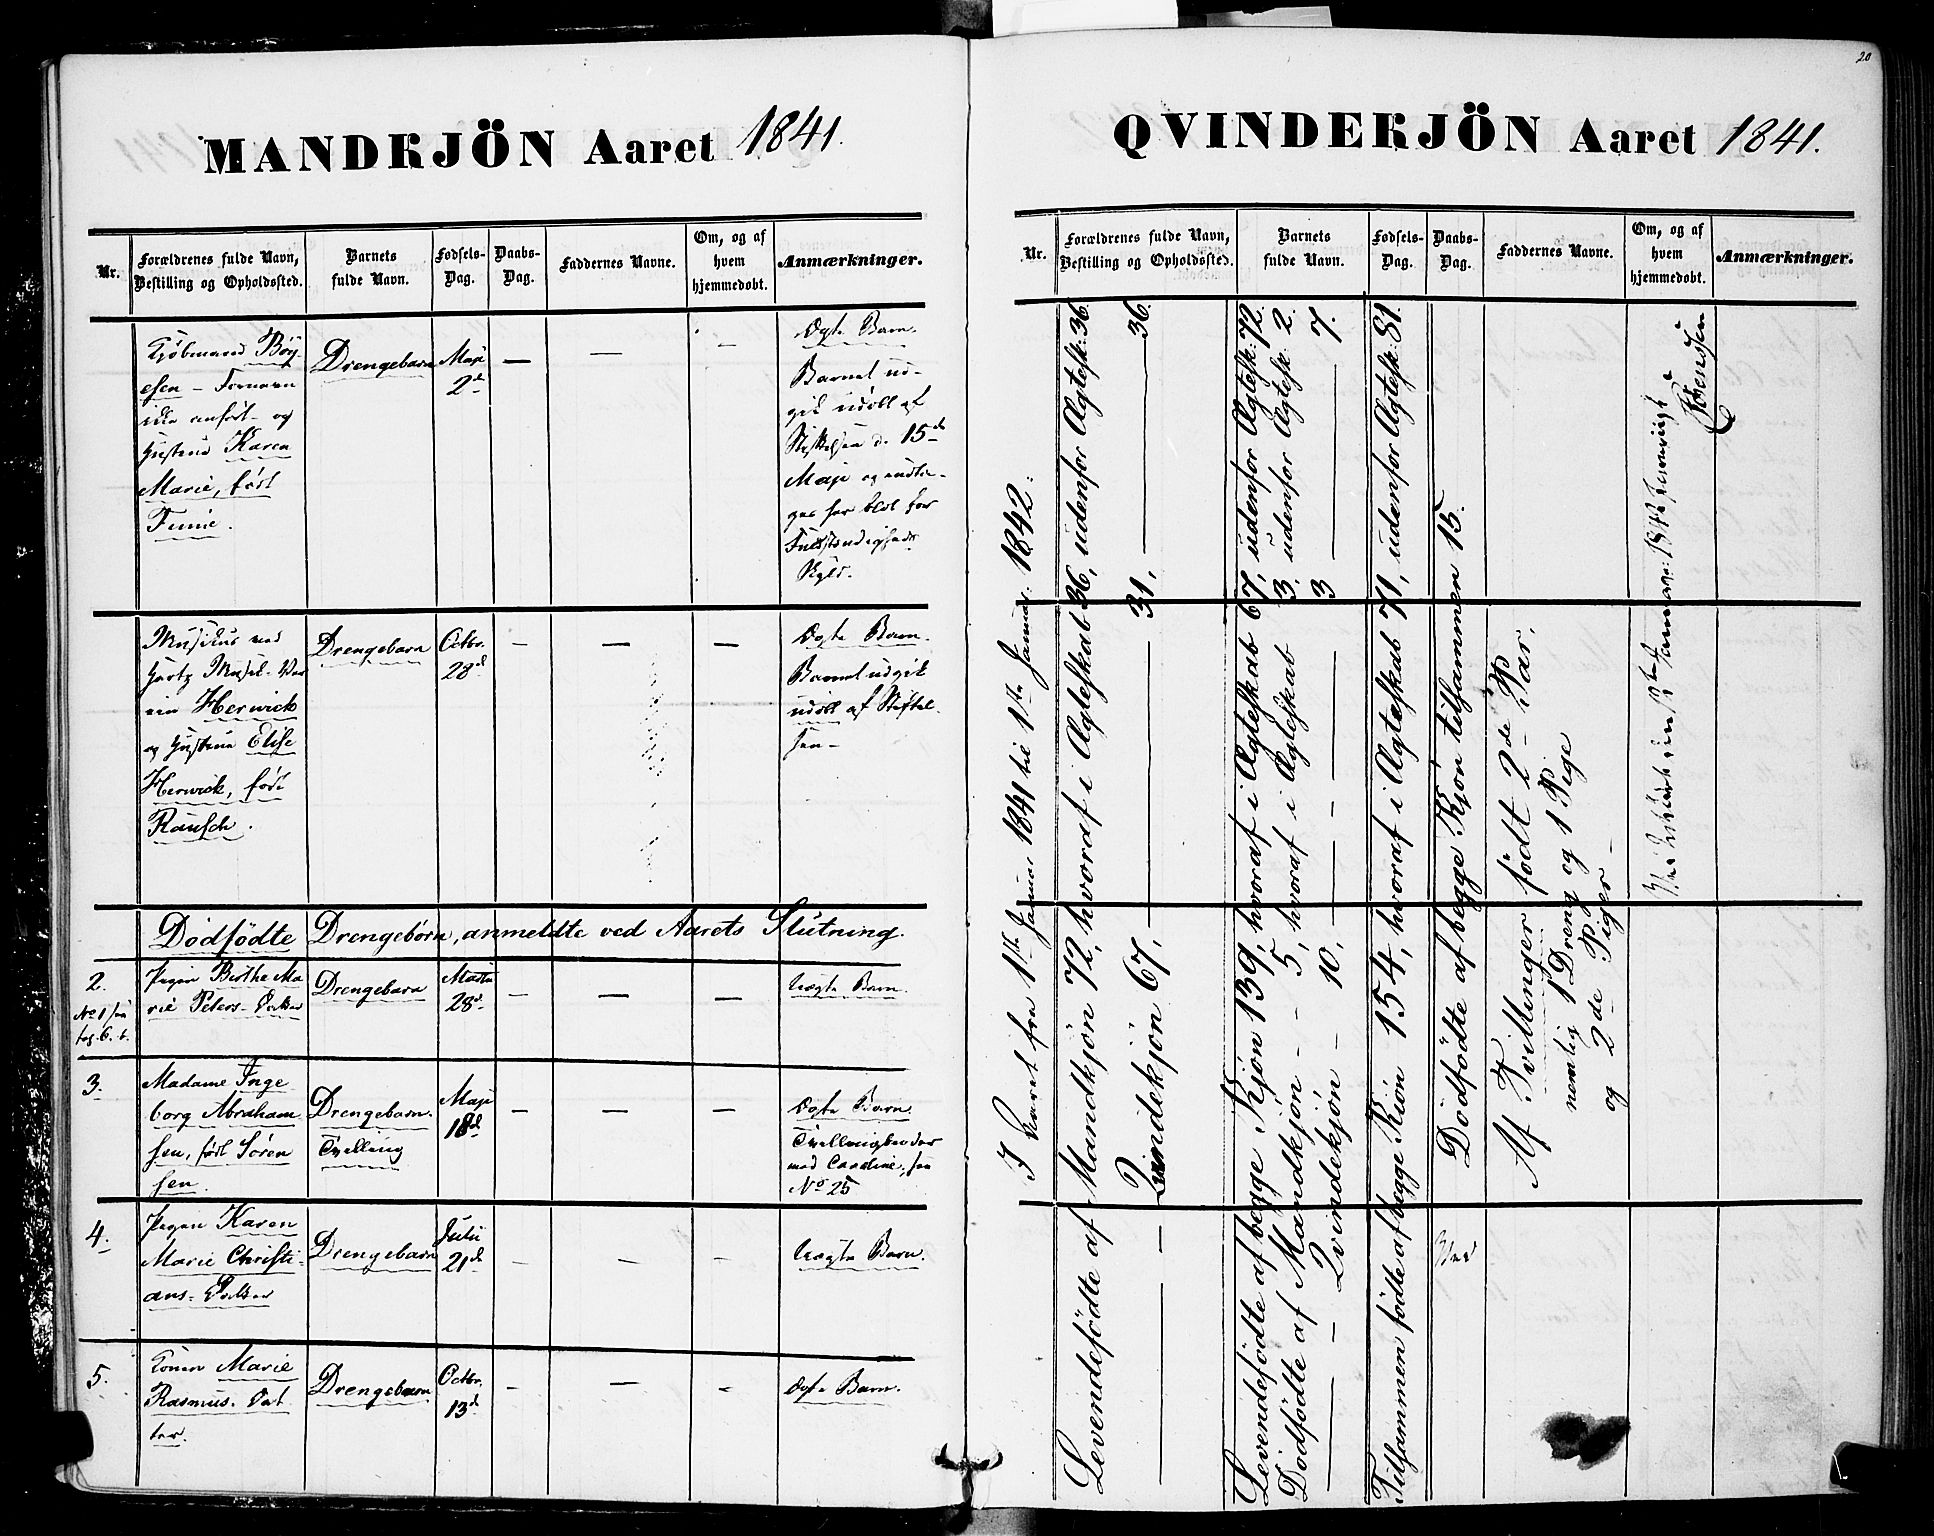 20
MANDKJÖN Aaret 1841.
Nr.
Forældrenes fulde Navn,
Bestilling og Opholdssted.
Barnets
fulde Navn.
Fødsels-
Dag.
Daabs-
Dag.
Faddernes Navne.
Om, og af
hvem
hjemmedøbt.
Anmærkninger.
Kjöbmand Böy
esen – Fornavn
ikke anfört – og
Hustrue Karen
Marie, född
Drengebarn
Maji
2d
—
—
—
Ægte Barn.
Barnet ud-
gik udöbt af
Stiftelsen d. 15d
Maji og
for
Skyld.
Musikus ved
Musik-
Herwick
og Hustrue Elise
Herwick, född
Rausch.
Drengebarn
Octbr.
28d
—
—
—
Ægte Barn.
Barnet udgik
udöbt af Stiftel-
sen –
Dödfödte Drengebörn, anmeldte ved Aarets Slutning.
2.
No 1 see
pag. 6. b.
Pigen Birthe Ma
rie Peters-Datter
Drengebarn
Martii
28d
—
—
—
Uægte Barn.
3.
Madame Inge
borg Abraham
sen, född Sören
sen.
Drengebarn.
Tvelling
Maji
18d
—
—
—
Ægte Barn
Tvellingbroder
med Caroline, see
No 25
4.
Pigen Karen
Marie Christi-
ans-Datter
Drengebarn
Julii
21d
—
—
—
Uægte Barn.
5.
Konen Marie
Rasmus-Dat
ter.
Drengebarn
Octbr.
13d
—
—
—
Ægte Barn.
QVINDERJÖN Aaret 1841.
Nr.
Forældrenes fulde Navn,
Bestilling og Opholdssted.
Barnets
fulde Navn.
Fødsels-
Dag.
Daabs-
Dag.
Faddernes Navne.
Om, og af
hvem
hjemmedøbt.
Anmærkninger.
I Aaret fra 1ste Januar 1841 til 1ste Januar 1842:
Levendefödte af Mandkjön 72, hvoraf i Ægteskab 36, udenfor Ægtesk: 36.
— — Qvindekjön 67, — 31, — 36.
Levendefödte af begge Kjön 139, hvoraf i Ægteskab 67, udenfor Ægtesk: 72.
Dödfödte af Mandkjön – – 5, hvoraf i Ægteskab 3, udenfor Ægtesk: 2.
— – Qvindekjön – 10, – – 3 — 7.
Tilsammen födte af begge Kiön 154, hvoraf i Ægteskab 71, udenfor Ægtesk: 81.
Dödfödte af begge Kjön tilsammen 15.
Af Tvillinger födt 2de Par,
nemlig 1 Dreng og 1 Pige
og 2de Piger –